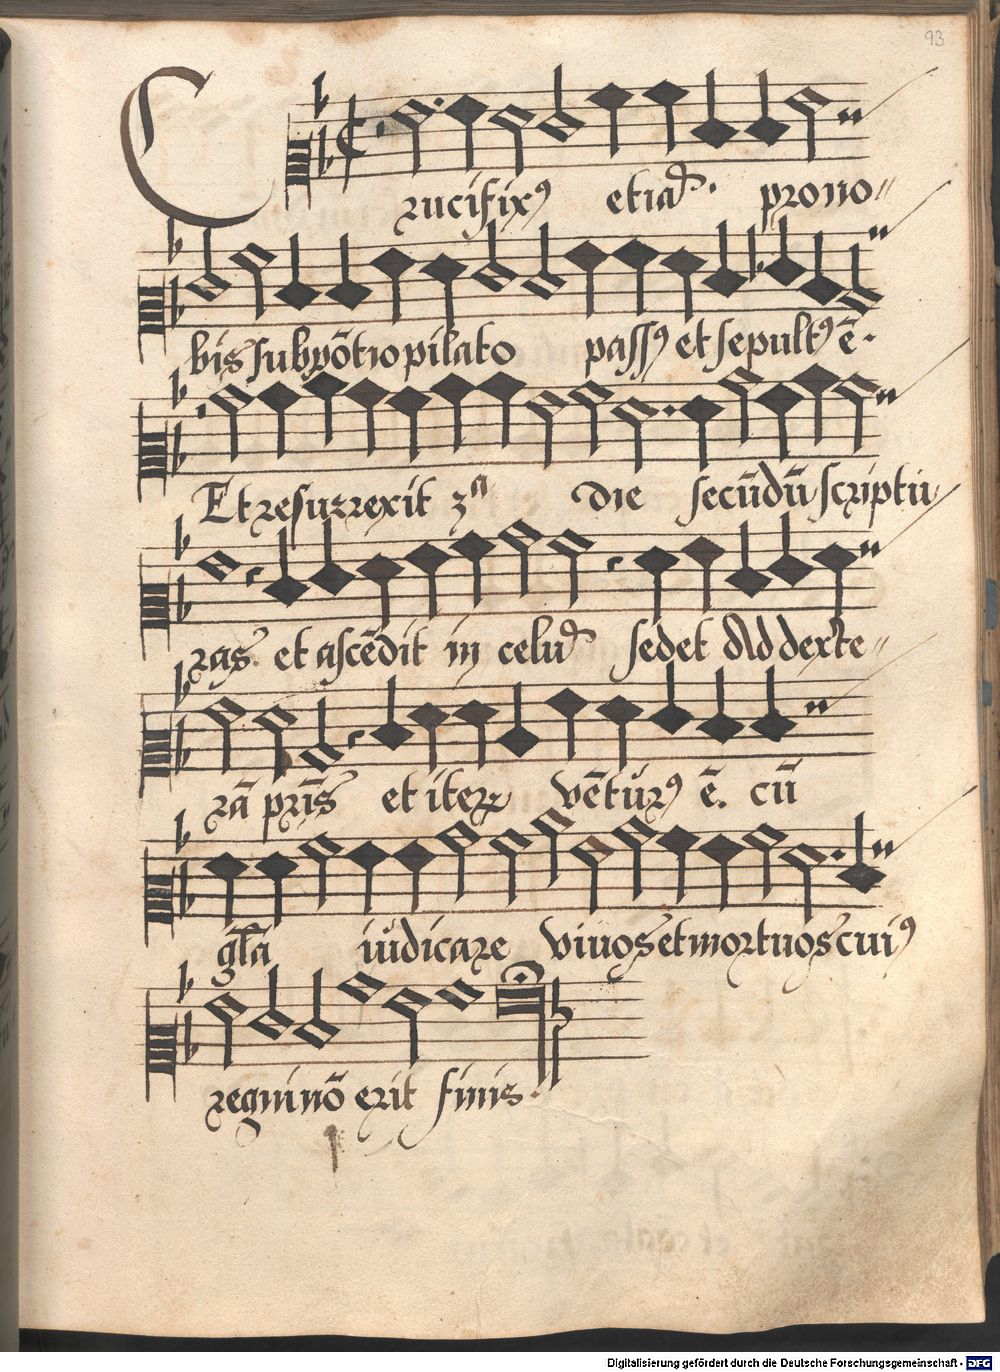 93
Crucifixꝰ etiā. prono〃
bis sub pōtio pilato passꝰ et sepultꝰ ē.
Et resurrexit 3ᵃ die secūdū scriptu
ras. et ascēdit in celū sedet Ad dexte〃
rā pr̄is et iteꝝ vēturꝰ ē. cū
gl̄a iudicare vivos et mortuos cuiꝰ
regni nō erit finis.
Digitalisierung gefördert durch die Deutsche Forschungsgemeinschaft - DFG